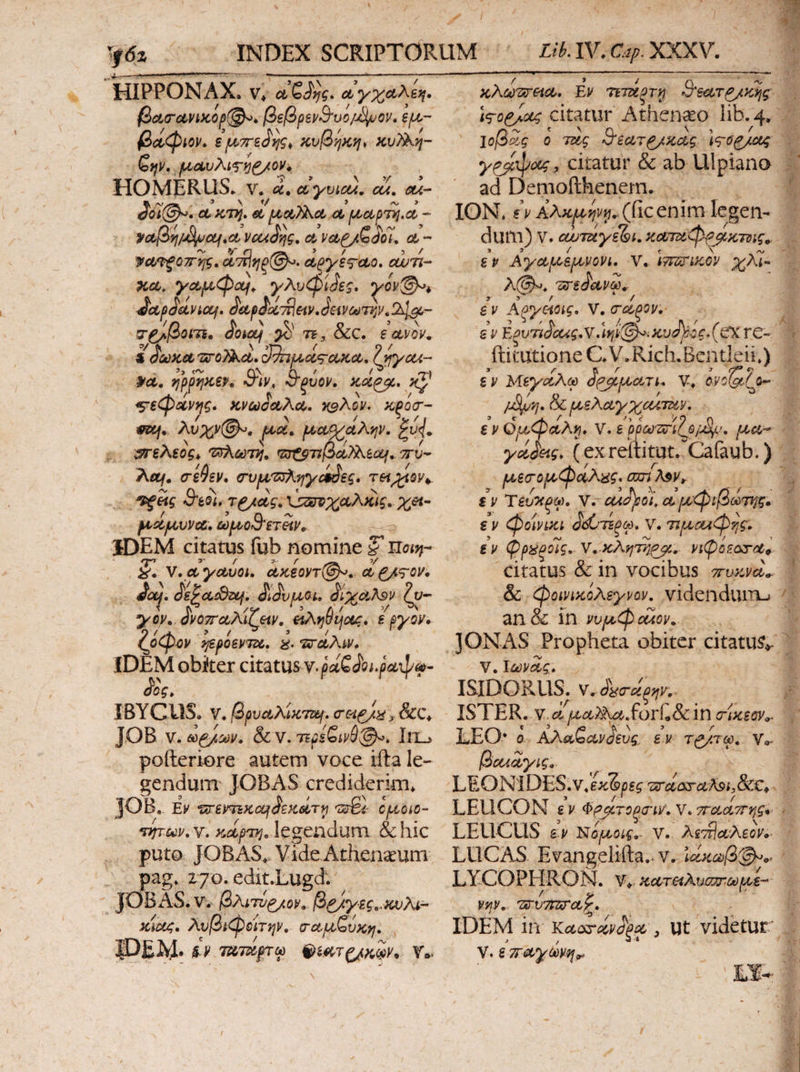 762 INDEX SCRIPTORUM Lib. IV. Cap. XXXV.
HIPPONAX. v. ἀϐδής. ἀγχαλέη.
βασανικόρος. βεβρενθυόμενον. ἐμ-
βάφιον. ἐμπεδής. κυβήκη. κυλλή-
ϐην. μαυλιστήριον.
HOMERUS. v. ἀ. ἀγυιαί. αἱ. αἰ-
δοῖος. ἀκτή. ἀμαλλα ἁμαρτῆ. ἀ-
ναβήμεναι. ἀναιδής. ἀναρϐδοῖ. ἀ-
νατροπῆς. ἀπληρος. ἀργέσταο. αὐτί-
κα. γαμφαί. γλυφίδες. γόνος.
δαρδάνιαι. δαρδάπτειν. δεινωτήν. Διατ-
τρίβοιτε. δοιαὶ γδ τε, &c. ἑανόν.
ἔδωκα πολλά. ἐπιμάστακα. ζηγαι-
να. ἠρρηκεν. θίν. θρύον. κάρρα. καὶ
στεφάνης. κνωδαλα. κᾶλον. κρόσ-
σαι. λυχνος. μά. μασχάλην. ξυή.
πέλεος. πλωτή. προτιβάλλεαι. πύ-
λαι. σέθεν. συμπληγάδες. τειχίον.
τρεῖς θεοί. τρίας. ὑποχαλκίς. χει-
μάμυνα. ὠμοθετεῖν.
IDEM citatus sub nomine τοῦ Ποιη-
τοῦ. v. ἀγαυοί. ἀκέοντος. ἄριστον.
δαί. δέξασθαι. δίδυμοι. δίχαλον ζυ-
γόν. δνοπαλίζειν. εἰληθῆας. ἔργον.
ζόφον ἠερόεντα. κ. πάλιν.
IDEM obiter citatus v. ῥαϐδοι. ῥαψῳ-
δός.
IBYCUS. v. βρυαλίκται. σειρίου, &c.
JOB v. ὡρίων. & v. τερέϐινθος. In
posteriore autem voce ista le-
gendum JOBAS crediderim.
JOB. Ἐν πεντεκαιδεκάτῃ περὶ ὁμοιο-
τήτων. v. κάρτη. legendum & hic
puto JOBAS. Vide Athenæum
pag. 270. edit. Lugd.
JOBAS. v. βλιτύριον. βρίγες. κυλι-
κίας. λυβιφοίτην. σαμϐύκη.
IDEM. ἐν τετάρτῳ θεατρικῶν. v.
κλώπεια. Ἐν τετάρτῃ θεατρικῆς
ἱστορίας citatur Athenæo lib. 4.
Ἰοβᾶς ὁ τὰς θεατρικὰς ἱστορίας
γράψας, citatur & ab Ulpiano
ad Demosthenem.
ION. ἐν Ἀλκμήνῃ. (sic enim legen-
dum) v. αὐταγεῖοι. κατάφρακτοις.
ἐν Ἀγαμέμνονι. v. ἱππικὸν χλί-
λος. πεδανῷ.
ἐν Ἀργείοις. v. σαῖρον.
ἐν Ἐρυτίδαις. v. ἴηϊος. κυδρός. (ex re-
stitutione C. V. Rich. Bentleii.)
ἐν Μεγάλῳ δράματι. v. ὀνοταζο-
μένη. & μελαγχαίταν.
ἐν Ὀμφάλῃ. v. ἐρρωπίζομεν. μα-
γάδεις. (ex restitut. Casaub.)
μεσομφάλους. σπῖλον.
ἐν Τεύκρῳ. v. αἰδροί. ἀμφιβώτης.
ἐν φοίνικι δευτέρῳ. v. τιμαιφής.
ἐν φρουροῖς. v. κλητῆρα. νιφόεσσα.
citatus & in vocibus πυκνά.
& φοινικόλεγνον. videndum
an & in νυμφαῖον.
JONAS Propheta obiter citatus.
v. Ἰωνᾶς.
ISIDORUS. v. δουσάρην.
ISTER. v. ἄμαλλα. fors. & in σίκεον.
LEO. ὁ Ἀλαϐανδεὺς ἐν τρίτῳ. v.
βαιάγις.
LEONIDES. v. ἔκθρες πάσσαλοι, &c.
LEUCON ἐν Φράτορσιν. v. παάπης.
LEUCUS ἐν Νόμοις. v. λεπταλέον.
LUCAS Evangelista. v. Ἰάκωβος.
LYCOPHRON. v. κατειλυσπωμέ-
νην. πύππαξ.
IDEM in Κασσάνδρα, ut videtur
v. ἐπαγώνη.
LY-